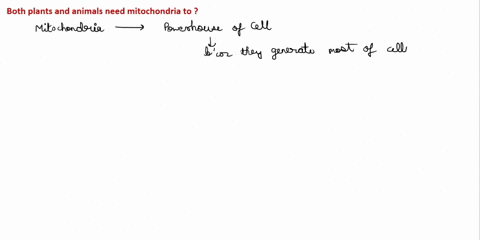 Both plants and animals need mitochondria to ?
Mitochondria → Powerhouse of Cell
↓
b'coz they generate most of cell